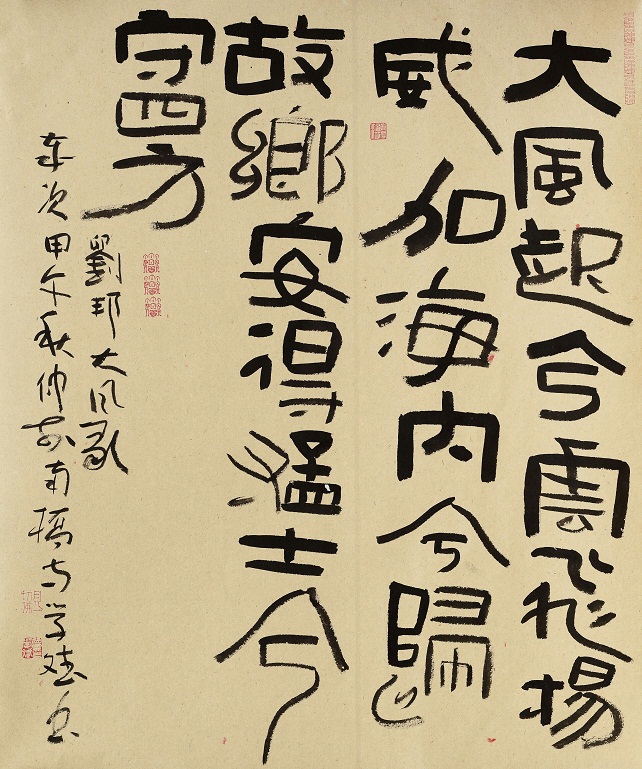 大風起兮雲飛揚
威加海内兮歸
故鄉安得猛士兮
守四方
劉邦大风歌
次甲午秋仲南橋学书